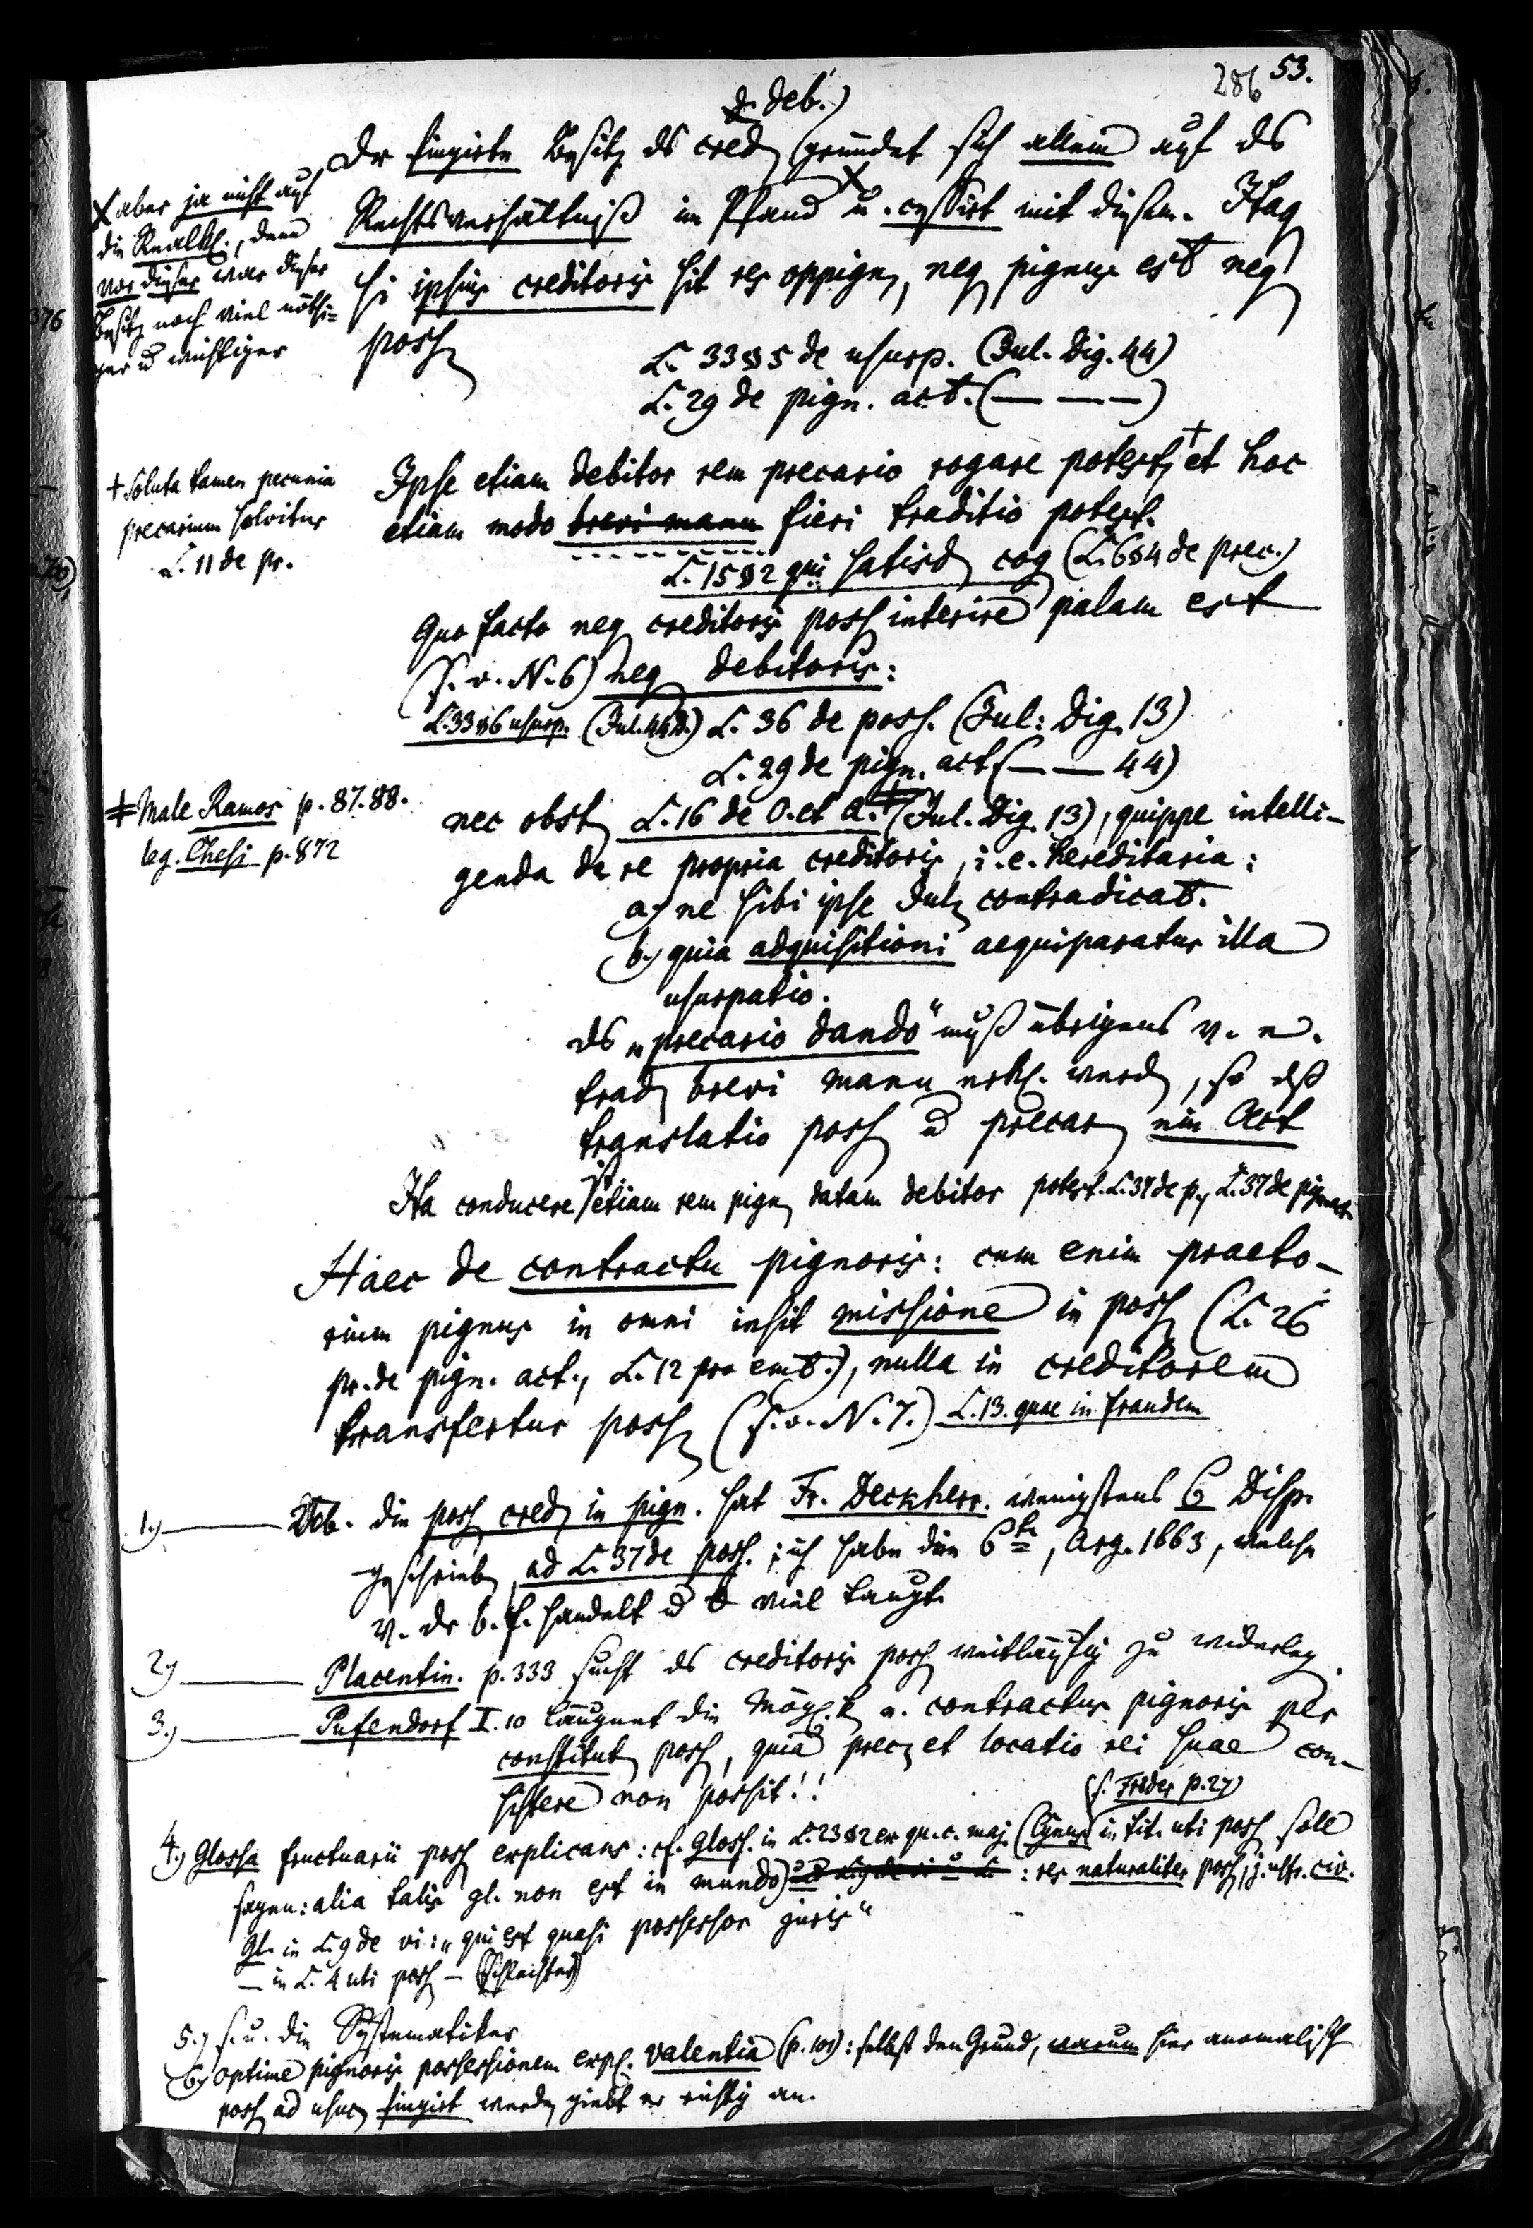 286 53.
d. deb.)
Dr fingirte Besitz ds cred (gründet sich allein auf ds
Rechtsverhältniß im Pfand u. cessirt mit diesem. Itaq
si ipsius creditoris sit res oppign, neq pignus est neq
poss
L. 33 § 5 de usurp. (Jul. Dig. 44)
L. 29 de pign. act. (— — —)
X aber ja nicht auf
die Realkl., denn
vor dieser war dieser
Besitz noch viel nöthi=
ger u wichtiger
Ipse etiam debitor rem precario rogare potest, + et hoc
etiam modo brevi manu fieri traditio potest.
L. 15 § 2 qui satisd cog (L. 6 § 4 de prec.)
+ Soluta tamen pecunia
precarium solvitur
L. 11 de pr.
Quo facto neq creditoris poss interire palam est
(s. o. N. 6) neq debitoris:
L. 33 § 6 usurp. (Jul. 44 D.) L. 36 de poss. (Jul: Dig. 13)
L. 29 de pign. act (— — 44)
nec obst L. 16 de O. et A. ‡ (Jul. Dig. 13), quippe intelli-
genda de re propria creditoris, i. e. hereditaria:
‡ Male Ramos p. 87. 88.
leg. Chesi p. 872
a, ne sibi ipse Jul contradicat.
b, quia adquisitioni aequiparatur illa
usurpatio.
ds „precario dando“ muß übrigens v. e.
trad brevi manu erkl. werd, so dß
translatio poss u precar ein Act
Ita conducere etiam rem pign datam debitor potest. L. 37 de p, L. 37 de pignerat.
Haec de contractu pignoris: cum enim praeto-
rium pignus in omni insit missione in poss (L. 26
pr. de pign. act., L. 12 pro emt.), nulla in creditorem
transfertur poss (s. o. N. 7.) L. 13. quae in fraudem
1.) — Üb. die poss cred in pign. hat Fr. Deckherr. wenigstens 6 Disp.
geschrieb, ad L. 37 de poss.; ich habe die 6te, Arg. 1663, welche
v. dr b. f. handelt u viel taugt.
2) — Placentin. p. 333 sucht ds creditoris poss weitläufig zu widerleg.
3.) — Pufendorf I. 10 läugnet die Mögl.k e. contractus pignoris per
constitut poss, quia prec et locatio rei suae con-
sistere non possit!!
(s. Frider p. 27)
4.) Glossa fructuarii poss explicans: cf. Gloss. in L. 23 § 2 ex qu. c. maj. (Cynus in tit. uti poss soll
sagen: alia talis gl. non est in mundo) : res naturaliter poss, civ.
Gl. in L. 9 de vi: „qui est quasi possessor juris“
— in L. 4 uti poss — (Schlechter)
5.) s. u. die Systematiker
6.) Optime pignoris possessionem expl. Valentia (p. 101): selbst den Grund, warum hier anomalisch
poss ad usuc fingirt werde, giebt er richtig an.